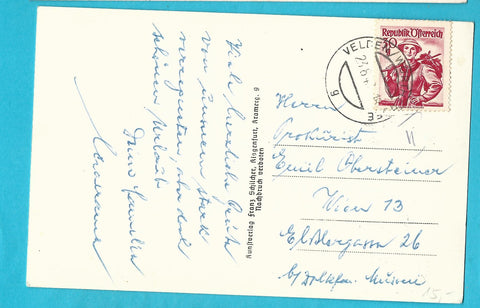 Viele herzliche Grüße
von unserem stark
verregneten, aber doch
schönen Urlaub
Ihre Familie
Kunstverlag Franz Schilcher, Klagenfurt, Kramerg. 9
Nachdruck verboten
Republik Österreich
30
VELDEN
Herrn
Prokurist
Emil Obersteiner
Wien 13
Elßlergasse 26
15,-